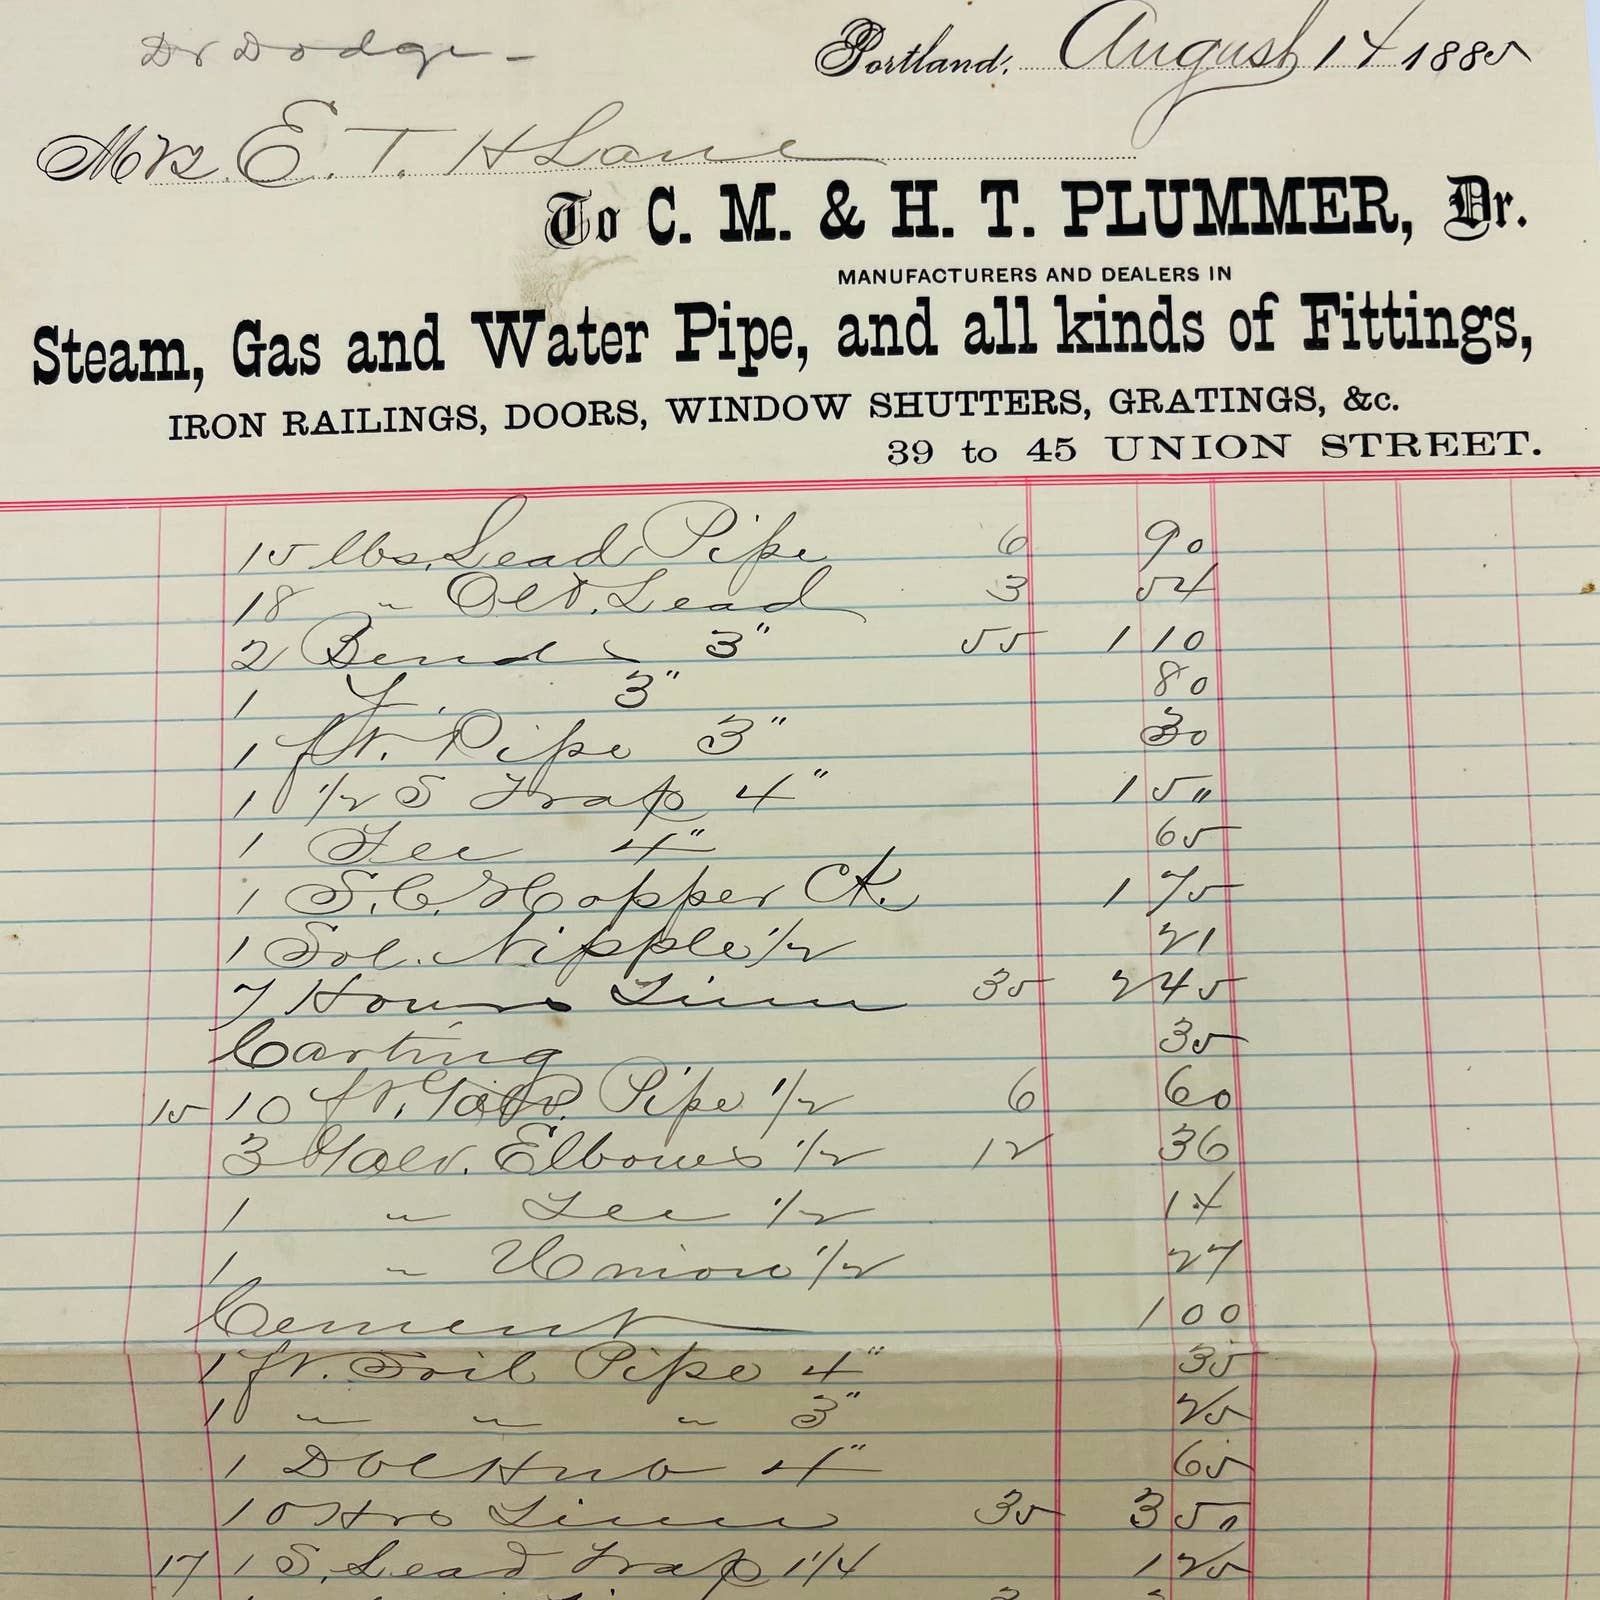 Dr Dodge -
Portland, August 14 1885
Mrs. E. T. H Lane
To C. M. & H. T. PLUMMER, Dr.
MANUFACTURERS AND DEALERS IN
Steam, Gas and Water Pipe, and all kinds of Fittings,
IRON RAILINGS, DOORS, WINDOW SHUTTERS, GRATINGS, &c.
39 to 45 UNION STREET.
15 lbs. Lead Pipe 6 90
18 " Lead 3 54
2 Bends 3" 55 1 10
1 Y. 3" 80
1 ft. Pipe 3" 30
1 1/2 S Trap 4" 1 50
1 Tee 4" 65
1 S. C. Hopper CK. 1 75
1 Sol. Nipple 1/2 21
7 Hours Time 35 2 45
Carting 35
15 10 ft. Galv. Pipe 1/2 6 60
3 Galv. Elbows 1/2 12 36
1 " Tee 1/2 14
1 " Union 1/2 27
Cement 1 00
1 ft. Soil Pipe 4" 35
1 " " " 3" 25
1 Dbl Hub 4" 65
10 Hrs Time 35 3 50
17 1 S. Lead Trap 1 1/4 1 25